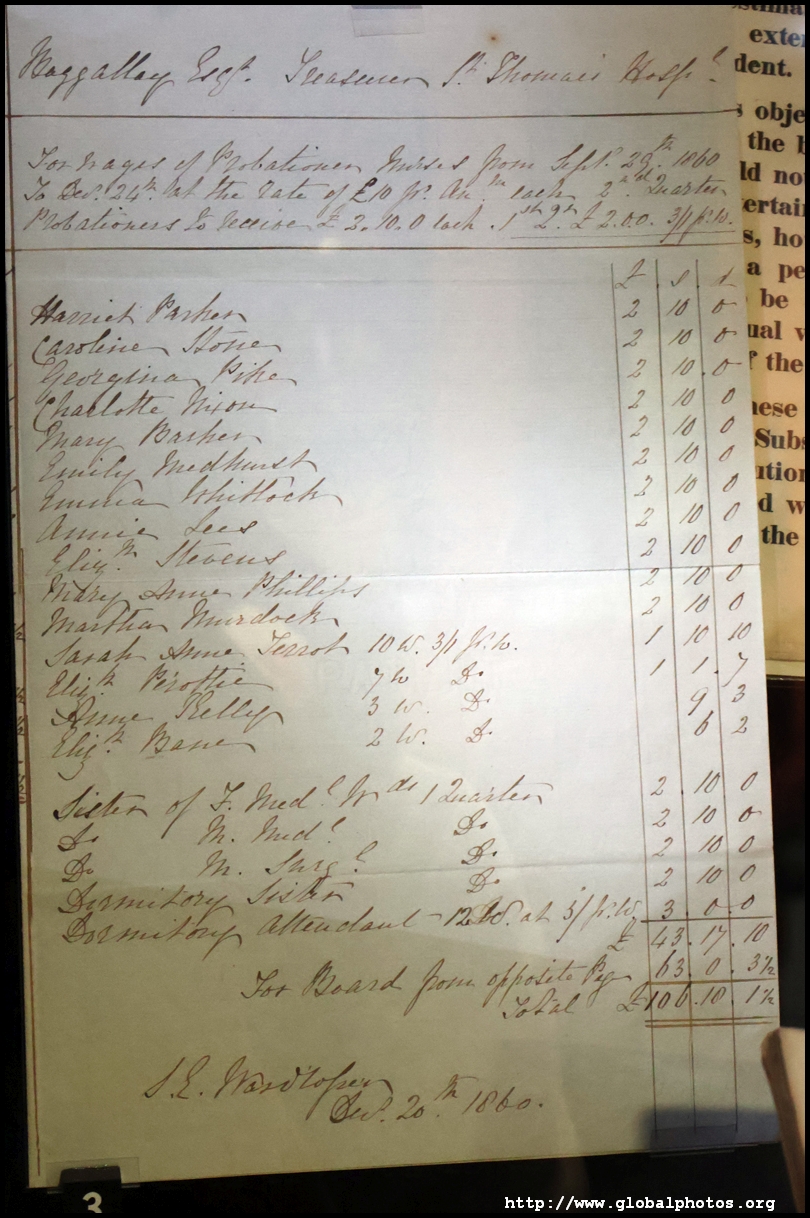 Haggallay Esqr. Treasurer St. Thomas's Hospl.
For wages of Probationer Nurses from Sept. 29th 1860
To Dec. 24th at the rate of £10 pr. Anm. each 2nd Quarter
Probationers to receive £2.10.0 each. 1st Qr £2.0.0. 3/1 pr. w.
£ . s . d
Harriet Parker 2 10 0
Caroline Stone 2 10 0
Georgina Pike 2 10 . 0
Charlotte Nixon 2 10 0
Mary Barker 2 10 0
Emily Medhurst 2 10 0
Emma Whitlock 2 10 0
Annie Lees 2 10 0
Elizth. Stevens 2 10 0
Mary Anne Phillips 2 10 0
Martha Murdock 2 10 0
Sarah Anne Terrot 10 W. 3/1 pr. W. 1 10 10
Elizth. Pirottie 7 W Do 1 1 . 7
Anne Kelly 3 W. Do 9 3
Elizth. Bane 2 W. Do 6 2
Sister of F. Medl. Wds 1 Quarter 2 . 10 0
Do M. Medl. Do 2 10 0
Do M. Surgl. Do 2 10 0
Dormitory Sister Do 2 10 0
Dormitory Attendant - 12 W. at 5/ pr. W. 3 . 0 . 0
£ 43 . 17 . 10
For Board from opposite Pag 63 . 0 . 3½
Total £106 . 18 . 1½
S. E. Wardroper
Dec. 20th. 1860.
exter
dent.
obje
the b
ld no
ertain
s, ho
a pe
be
ual
the
Subs
ution
d w
the
3
http://www.globalphotos.org